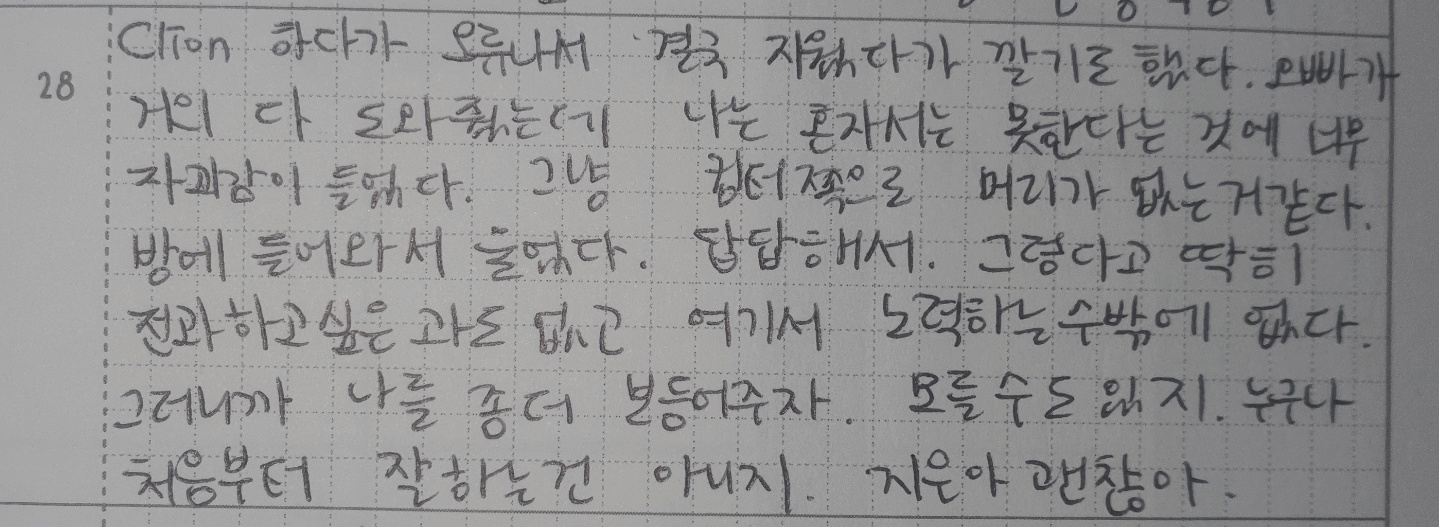 Clion 하다가 오류나서 결국 지웠다가 깔기로 했다. 오빠가
28 거의 다 도와줬는데 나는 혼자서는 못한다는 것에 너무
자괴감이 들었다. 그냥 컴터쪽으로 머리가 없는거같다.
방에 들어와서 울었다. 답답해서. 그렇다고 딱히
전과하고싶은 과도 없고 여기서 노력하는수밖에 없다.
그러니까 나를 좀더 보듬어주자. 모를수도 있지. 누구나
처음부터 잘하는건 아니지. 지은아 괜찮아.